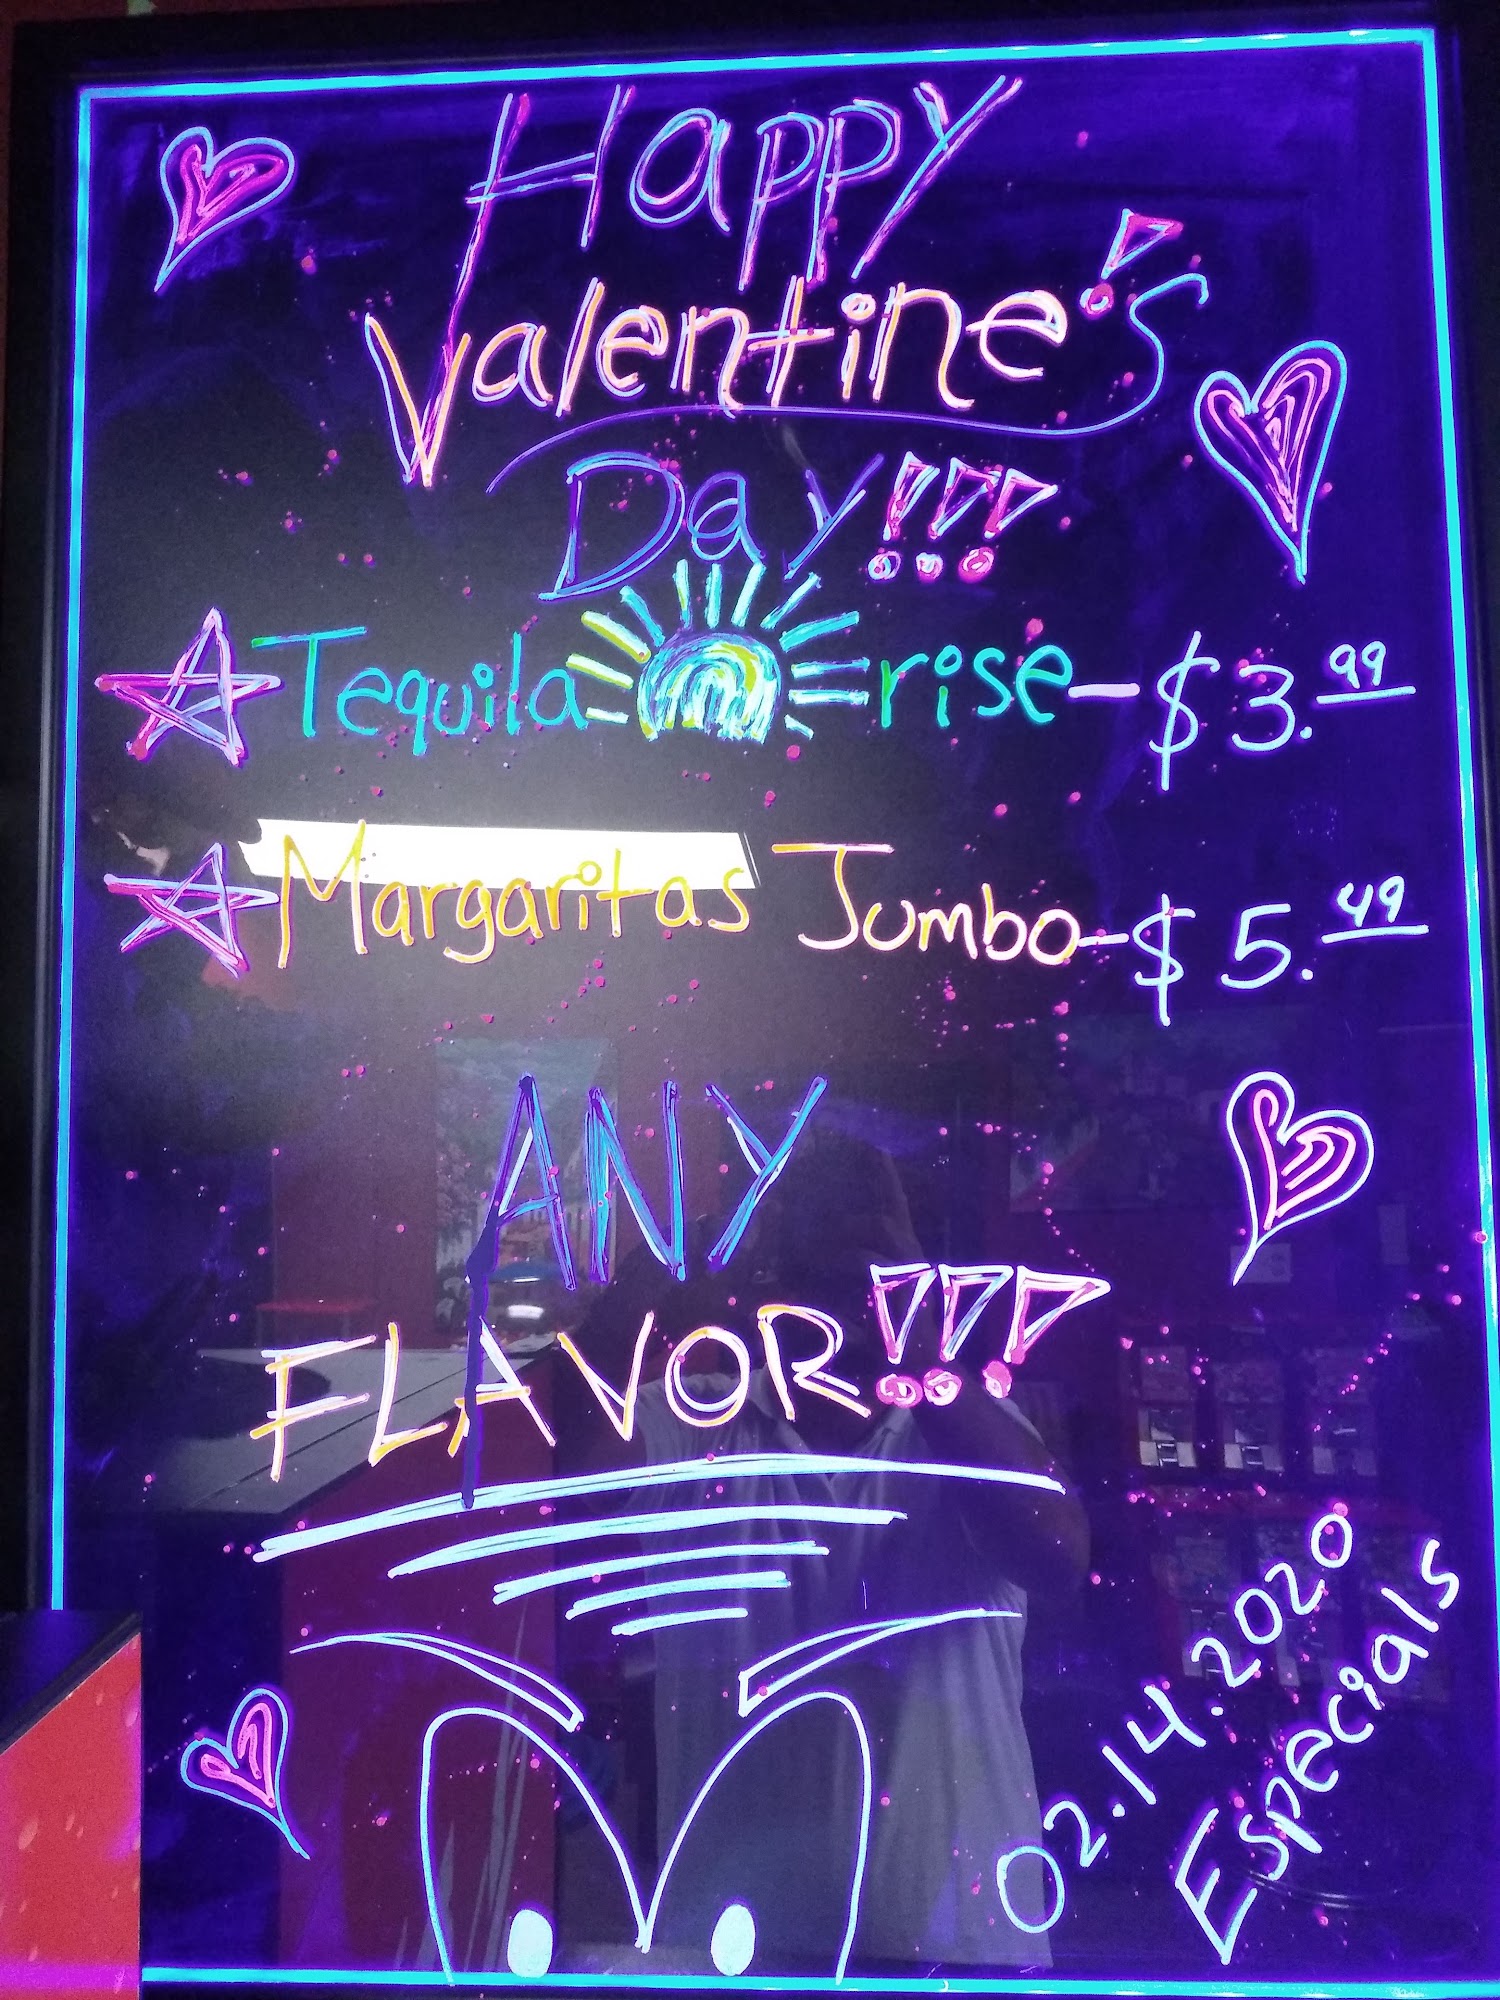 Happy
Valentine's
Day!!!
Tequila rise-$3.99
Margaritas Jumbo-$5.49
ANY
FLAVOR!!!
02.14.2020
Especials